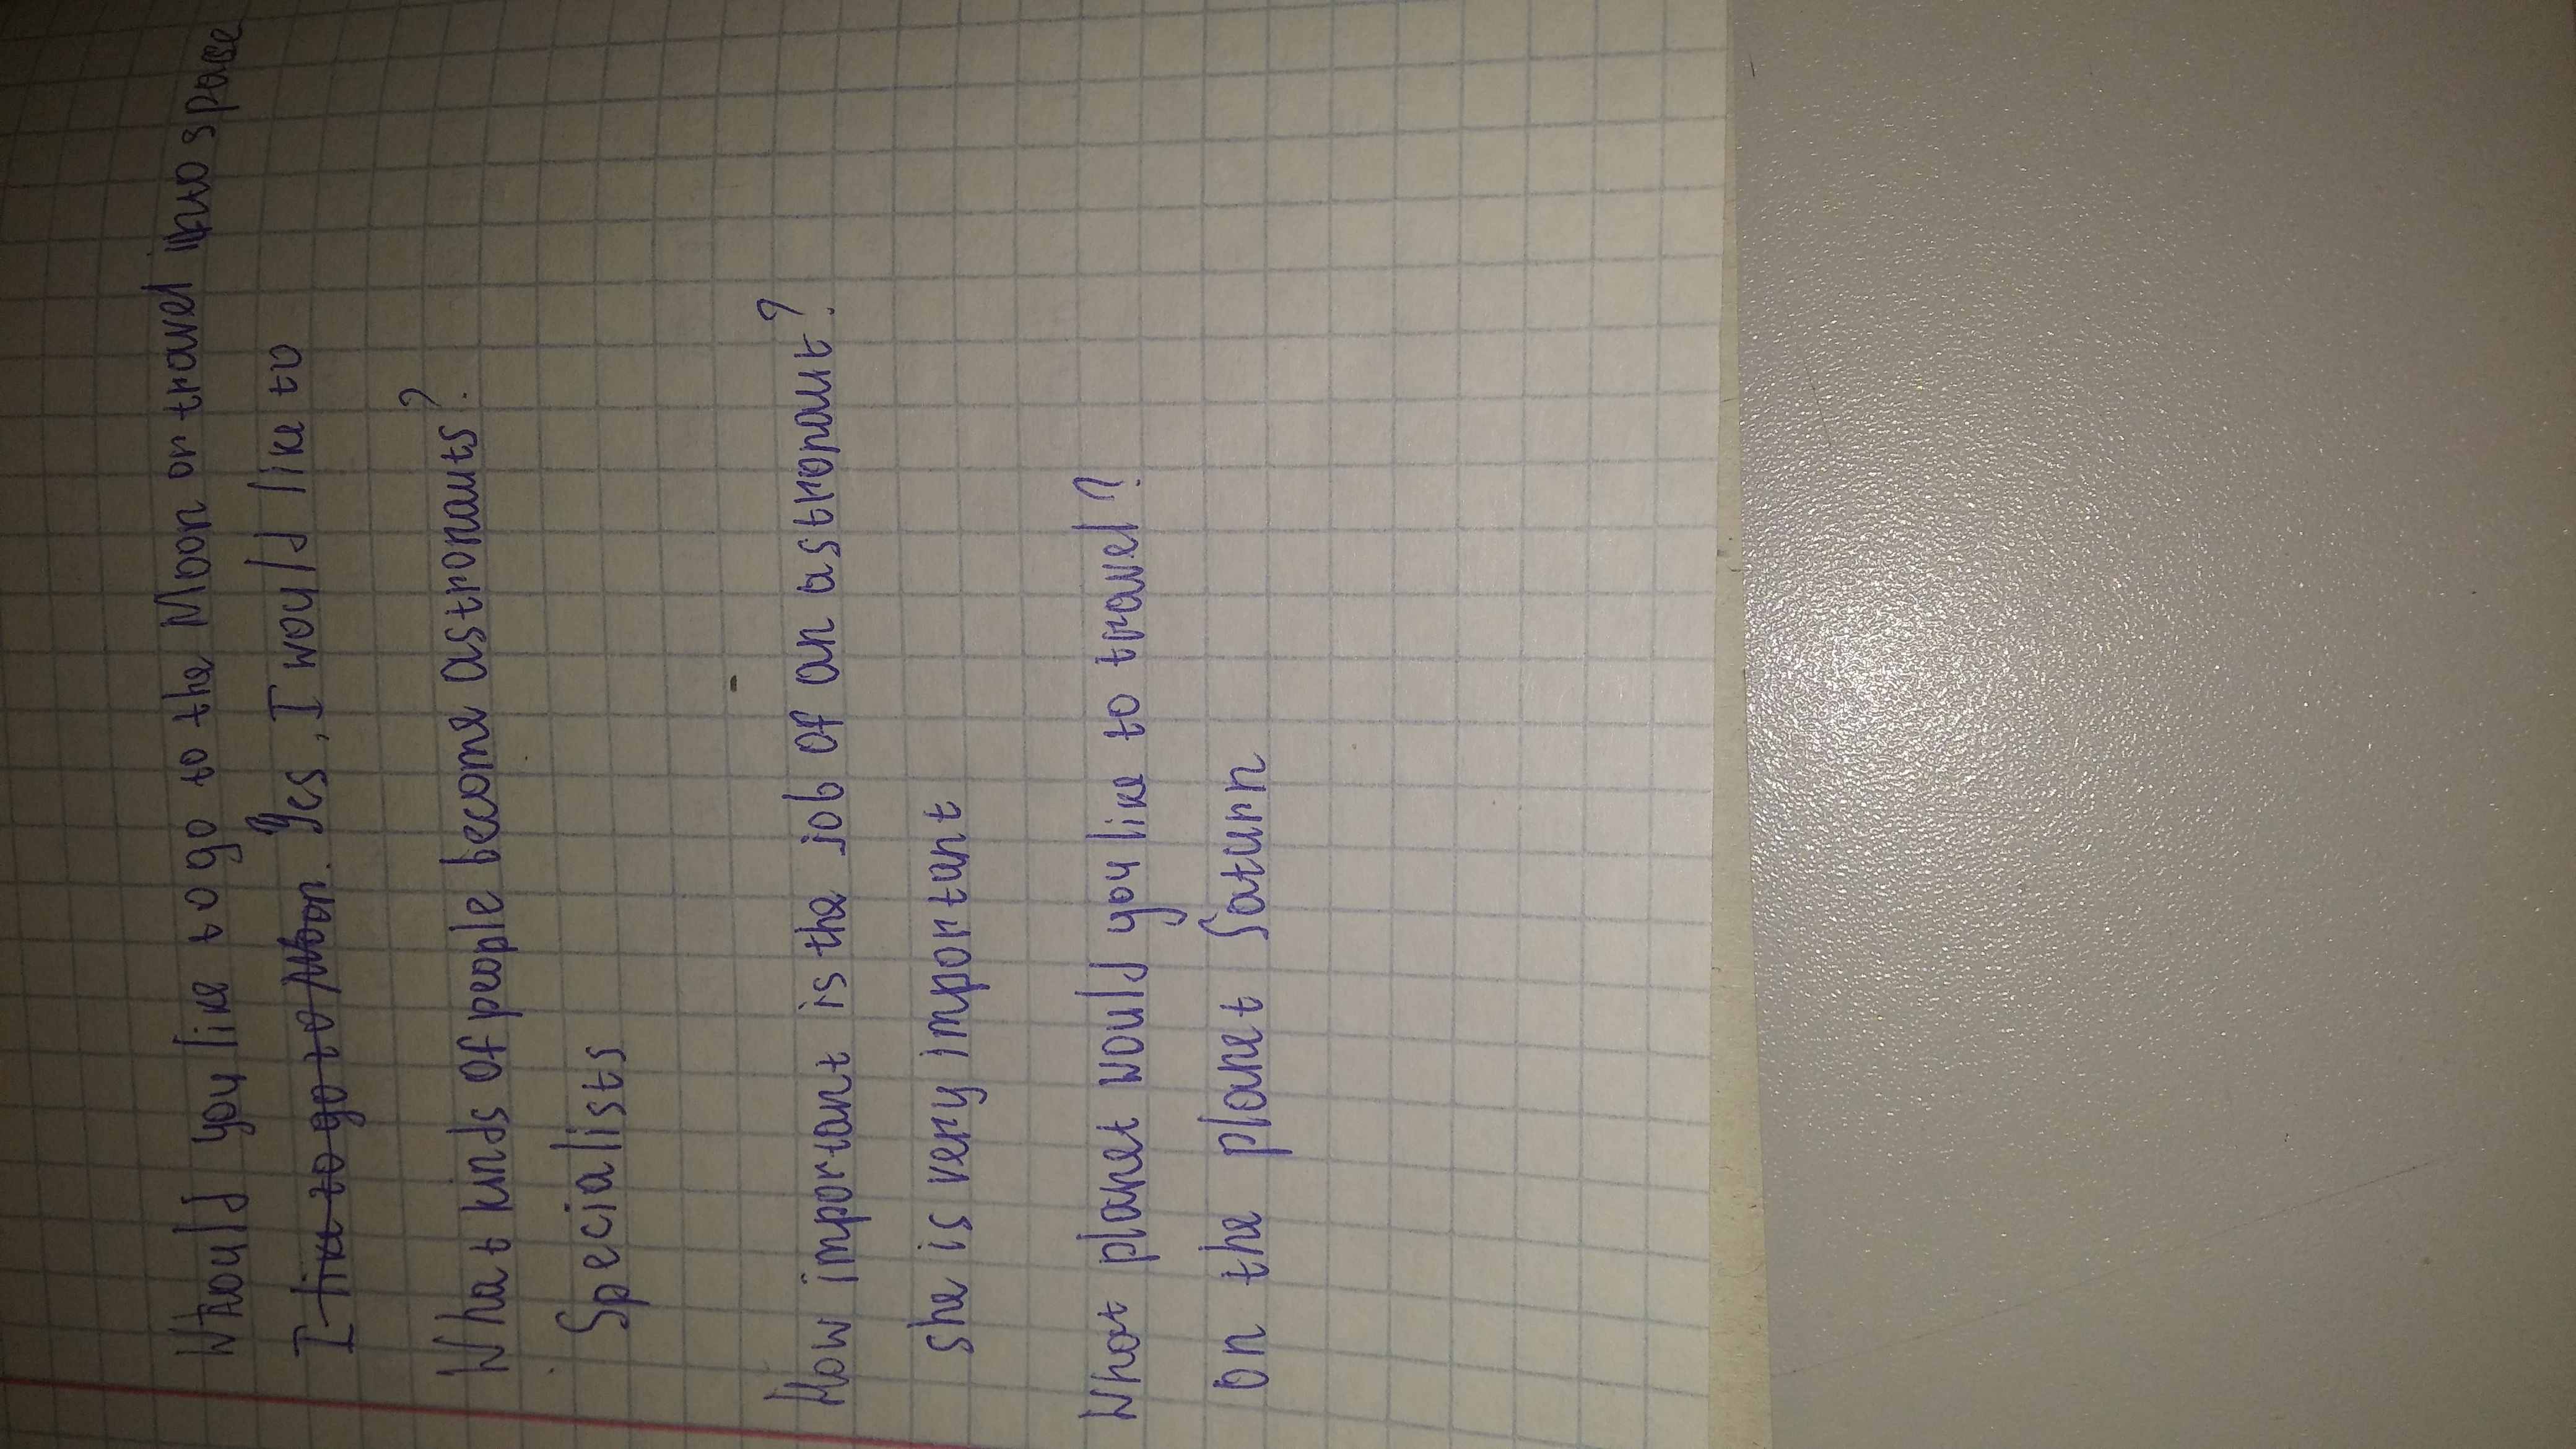 Whould you like to go to the Moon or travel into space
I like to go to Moon. Yes, I would like to
What kinds of people become astronauts?
Specialists
How important is the job of an astronaut?
she is very important
What planet would you like to travel?
On the planet Saturn